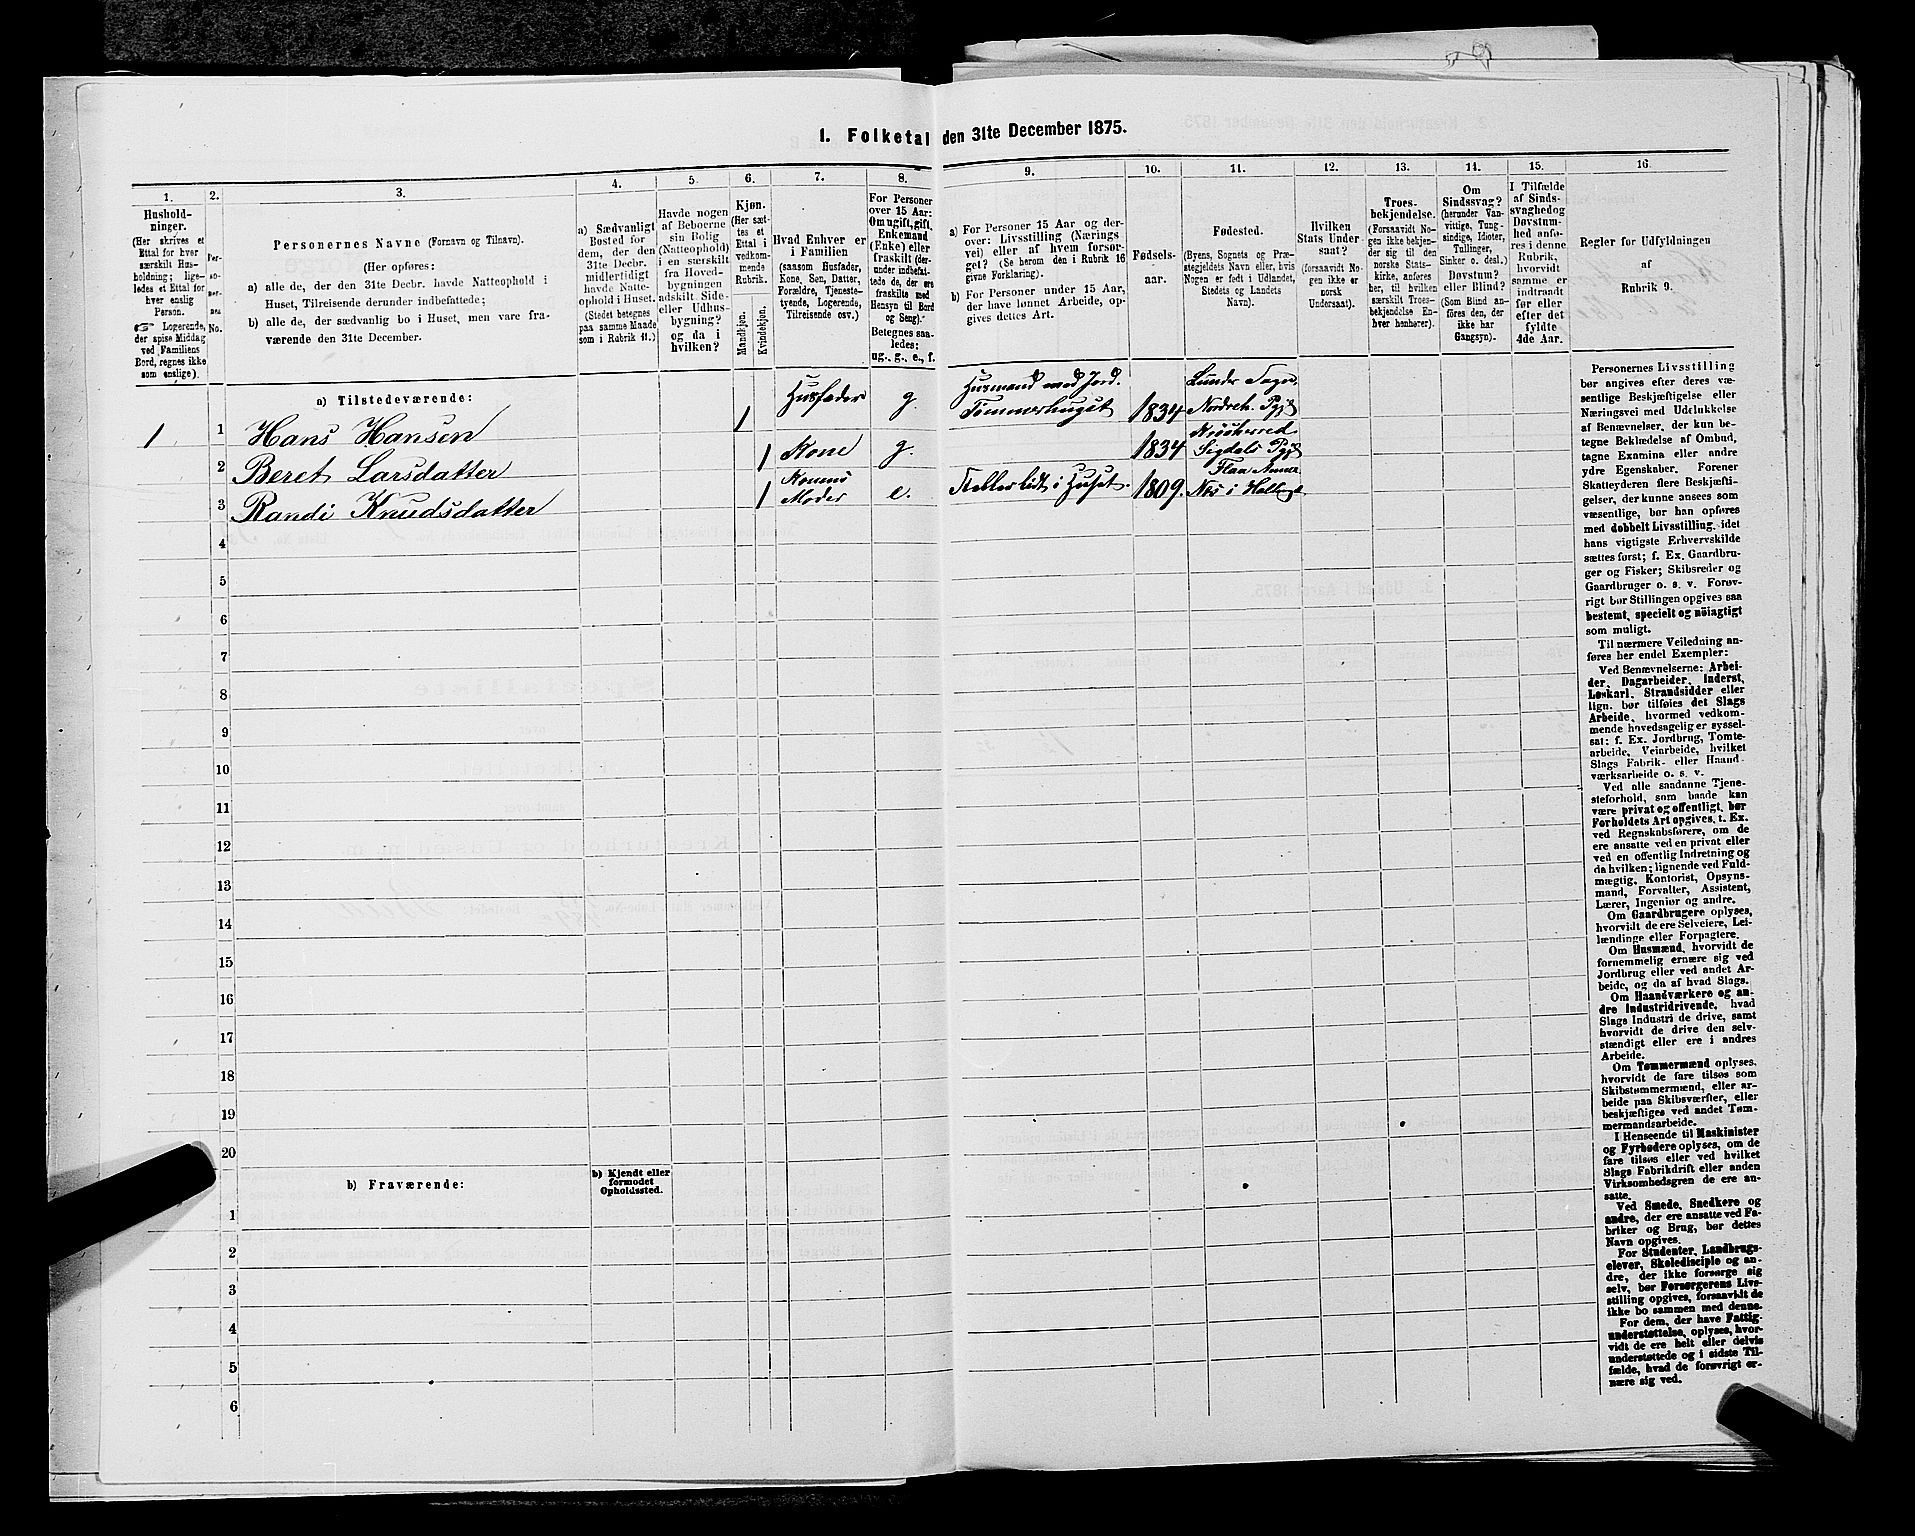 1. Folketal den 31te December 1875.
1.
Hushold-
ninger.
(Her skrives et
Ettal for hver
særskilt Hus-
holdning; lige-
ledes et Ettal for
hver enslig
Person.
☞ Logerende,
der spise Middag
ved Familiens
Bord, regnes ikke
som enslige).
2.
Per-
so-
ner-
nes
No.
3.
Personernes Navne (Fornavn og Tilnavn).
(Her opføres:
a) alle de, der den 31te Decbr. havde Natteophold i
Huset, Tilreisende derunder indbefattede;
b) alle de, der sædvanlig bo i Huset, men vare fra-
værende den 31te December.
4.
a) Sædvanligt
Bosted for
dem, der den
31te Decbr.
midlertidigt
havde Natte-
ophold i Huset.
(Stedet betegnes
paa samme Maade
som i Rubrik 11.)
5.
Havde nogen
af Beboerne
sin Bolig
(Natteophold)
i en særskilt
fra Hoved-
bygningen
adskilt Side-
eller Udhus-
bygning?
og da i
hvilken?
6.
Kjøn.
(Her sæt-
tes et
Ettal i
vedkom-
mende
Rubrik.
Mandkjøn.
Kvindekjøn.
7.
Hvad Enhver er
i Familien
(saasom Husfader,
Kone, Søn, Datter,
Forældre, Tjeneste-
tyende, Logerende,
Tilreisende osv.)
8.
For Personer
over 15 Aar:
Om ugift, gift,
Enkemand
(Enke) eller
fraskilt (der-
under indbefat-
tede de, der ere
fraskilte med
Hensyn til Bord
og Seng).
Betegnes saa-
ledes:
ug., g., e., f.
9.
a) For Personer 15 Aar og der-
over: Livsstilling (Nærings
vei) eller af hvem forsør-
get? (Se herom den i Rubrik 16
givne Forklaring).
b) For Personer under 15 Aar,
der have lønnet Arbeide, op-
gives dettes Art.
10.
Fødsels-
aar.
11.
Fødested.
(Byens, Sognets og Præ-
stegjeldets Navn eller, hvis
Nogen er født i Udlandet,
Stedets og Landets
Navn).
12.
Hvilken
Stats Under-
saat?
(forsaavidt No-
gen ikke er
norsk
Undersaat).
13.
Troes-
bekjendelse.
(Forsaavidt No-
gen ikke bekjen-
der sig til den
norske Stats-
kirke, anføres
her, til hvilken
særskilt Troes-
bekjendelse En-
hver henhører).
14.
Om
Sindssvag?
(herunder Van-
vittige, Tung-
sindige, Idioter,
Tullinger,
Sinker o. desl.)
Døvstum?
eller Blind?
(Som Blind an-
føres den, der
ikke har
Gangsyn).
15.
I Tilfælde
af Sinds-
svaghed og
Døvstum-
hed anfø-
res i denne
Rubrik,
hvorvidt
samme er
indtraadt
før eller
efter det
fyldte
4de Aar.
16.
Regler for Udfyldningen
af
Rubrik 9.
a) Tilstedeværende:
1 1 Hans Hansen 1 Husfader g. Husmand med Jord. Tømmerhugst 1834 Lunder Sogn. Nordreh. Pgj.
2 Beret Larsdatter 1 Kone g. 1834 Krødsherred Sigdals Pgj.
3 Randi Knudsdatter 1 Konens Moder e. Føllerlidt i Huset. 1809. Flaa Annex Næs i Hallingd.
4
5
6
7
8
9
10
11
12
13
14
15
16
17
18
19
20
b) Fraværende:
b) Kjendt eller
formodet
Opholdssted.
1
2
3
4
5
6
Personernes Livsstilling
bør angives efter deres væ-
sentlige Beskjæftigelse eller
Næringsvei med Udelukkelse
af Benævnelser, der kun be-
tegne Beklædelse af Ombud,
tagne Examina eller andre
ydre Egenskaber. Forener
Skatteyderen flere Beskjæfti-
gelser, der kunne ansees som
væsentlige, bør han opføres
med dobbelt Livsstilling, idet
hans vigtigste Erhvervskilde
sættes først; f. Ex. Gaardbru-
ger og Fisker; Skibsreder og
Gaardbruger o. s. v. Forøv-
rigt bør Stillingen opgives saa
bestemt, specielt og nøiagtigt
som muligt.
Til nærmere Veiledning an-
føres her endel Exempler:
Ved Benævnelserne: Arbei-
der, Dagarbeider, Inderst,
Løskarl, Strandsidder eller
lign. bør tilføies det Slags
Arbeide, hvormed vedkom-
mende hovedsagelig er syssel-
sat; f. Ex. Jordbrug, Tomte-
arbeide, Veiarbeide, hvilket
Slags Fabrik- eller Haand-
værksarbeide o. s. v.
Ved alle saadanne Tjene-
steforhold, som baade kan
være privat og offentligt, bør
Forholdets Art opgives, t. Ex.
ved Regnskabsførere, om de
ere ansatte ved en privat eller
ved en offentlig Indretning og
da hvilken; lignende ved Fuld-
mægtig, Kontorist, Opsyns-
mand, Forvalter, Assistent,
Lærer, Ingeniør og andre.
Om Gaardbrugere oplyses,
hvorvidt de ere Selveiere, Lei-
lændinge eller Forpagtere.
Om Husmænd, hvorvidt de
fornemmelig ernære sig ved
Jordbrug eller ved andet Ar-
beide, og da af hvad Slags.
Om Haandværkere og an-
dre Industridrivende, hvad
Slags Industri de drive, samt
hvorvidt de drive den selv-
stændigt eller ere i andres
Arbeide.
Om Tømmermænd oplyses,
hvorvidt de fare tilsøs som
Skibstømmermænd, eller ar-
beide paa Skibsværfter, eller
beskjæftiges ved andet Tøm-
mermandsarbeide.
I Henseende til Maskinister
og Fyrbødere oplyses, om de
fare tilsøs eller ved hvilket
Slags Fabrikdrift eller anden
Virksomhedsgren de ere an-
satte.
Ved Smede, Snedkere og
andre, der ere ansatte ved Fa-
briker og Brug, bør dettes
Navn opgives.
For Studenter, Landbrugs-
elever, Skoledisciple og an-
dre, der ikke forsørge sig
selv, bør Forsørgerens Livs-
stilling opgives, forsaavidt de
ikke bo sammen med denne.
For dem, der have Fattig-
understøttelse, oplyses, hvor-
vidt de ere helt eller delvis
understøttede og i sidste Til-
fælde, hvad de forøvrigt er-
nære sig ved.